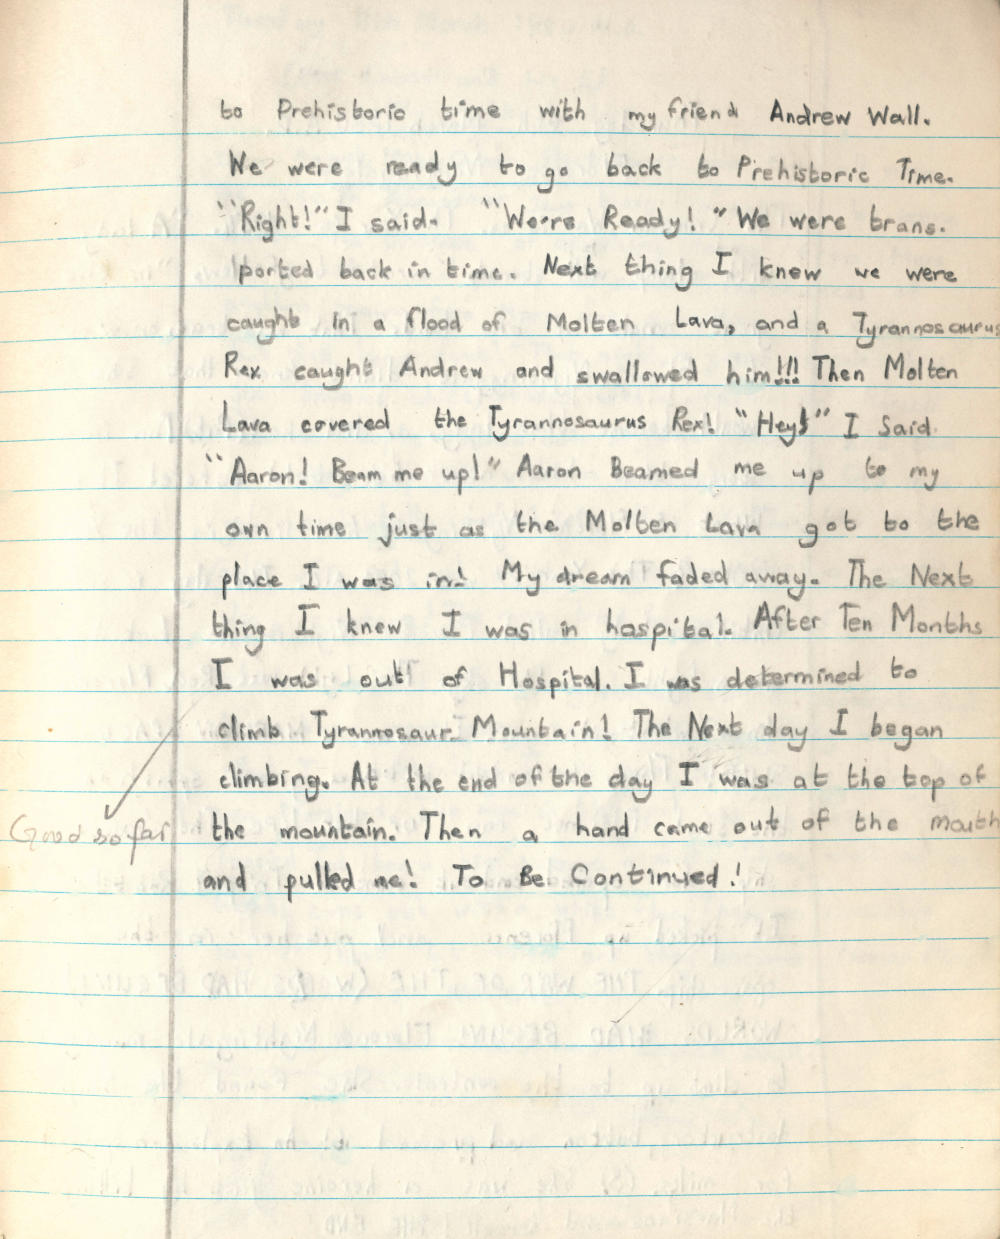 to Prehistoric time with my friend Andrew Wall.
We were ready to go back to Prehistoric Time.
"Right!" I said. "We're Ready!" We were trans-
ported back in time. Next thing I knew we were
caught in a flood of Molten Lava, and a Tyrannosaurus
Rex caught Andrew and swallowed him!!! Then Molten
Lava covered the Tyrannosaurus Rex! "Hey!" I Said.
"Aaron! Beam me up!" Aaron Beamed me up to my
own time just as the Molten Lava got to the
place I was in! My dream faded away. The Next
thing I knew I was in hospital. After Ten Months
I was out of Hospital. I was determined to
climb Tyrannosaur Mountain! The Next day I began
climbing. At the end of the day I was at the top of
Good so far
the mountain. Then a hand came out of the mouth
and pulled me! To Be Continued!